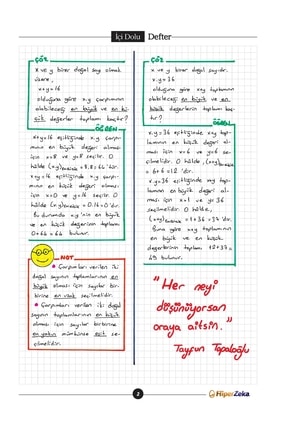 İçi Dolu Defter
ÇÖZ
x ve y birer doğal sayı olmak
üzere,
x+y=16
olduğuna göre x.y çarpımının
alabileceği en büyük ve en kü-
çük değerler toplamı kaçtır?
ÖĞREN
x+y=16 eşitliğinde x.y çarpı-
mının en büyük değeri alması
için x=8 ve y=8 seçilir. O
hâlde (x.y) = 8.8 = 64 'dür.
x+y=16 eşitliğinde x.y çarpı-
mının en küçük değeri alması
için x=0 ve y=16 seçilir. O
hâlde (x.y) = 0.16 = 0'dır.
Bu durumda x.y 'nin en büyük
ve en küçük değerinin toplamı
0+64=64 bulunur.
NOT
Çarpımları verilen iki
doğal sayının toplamlarının en
büyük olması için sayılar bir-
birine en uzak seçilmelidir.
Çarpımları verilen iki doğal
sayının toplamlarının en küçük
olması için sayılar birbirine
en yakın mümkünse eşit se-
çilmelidir.
ÇÖZ
x ve y birer doğal sayıdır.
x.y=36
olduğuna göre x+y toplamının
alabileceği en büyük ve en
küçük değerlerin toplamı kaç-
tır?
ÖĞREN
x.y=36 eşitliğinde x+y top-
lamının en küçük değeri al-
ması için x=6 ve y=6 se-
çilmelidir. O hâlde, (x+y)
=6+6=12 'dir.
x.y=36 eşitliğinde x+y top-
lamının en büyük değeri al-
ması için x=1 ve y=36
seçilmelidir. O hâlde,
(x+y) = 1+36=37 'dir.
Buna göre x+y toplamının
en büyük ve en küçük
değerlerinin toplamı 12+37=
49 bulunur.
"Her neyi
düşünüyorsan
oraya aitsin."
Tayfun Topaloğlu
2
HiperZeka